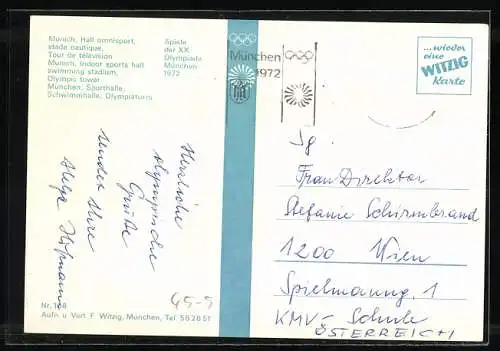 Munich, Hall omnisport,
stade nautique,
Tour de télévision
Munich, Indoor sports hall
swimming stadium,
Olympic tower
München, Sporthalle,
Schwimmhalle, Olympiaturm
Spiele
der XX.
Olympiade
München
1972
München
1972
...wieder
eine
WITZIG
Karte
Herzliche
olympische
Grüße
sendet Ihre
Helga Hofmann
Frau Direktor
Stefanie Schürmbrand
1200 Wien
Spielmanng. 1
KMV - Schule
ÖSTERREICH
45-5
Nr. 168
Aufn. u. Vert. F. Witzig, München, Tel. 56 28 51